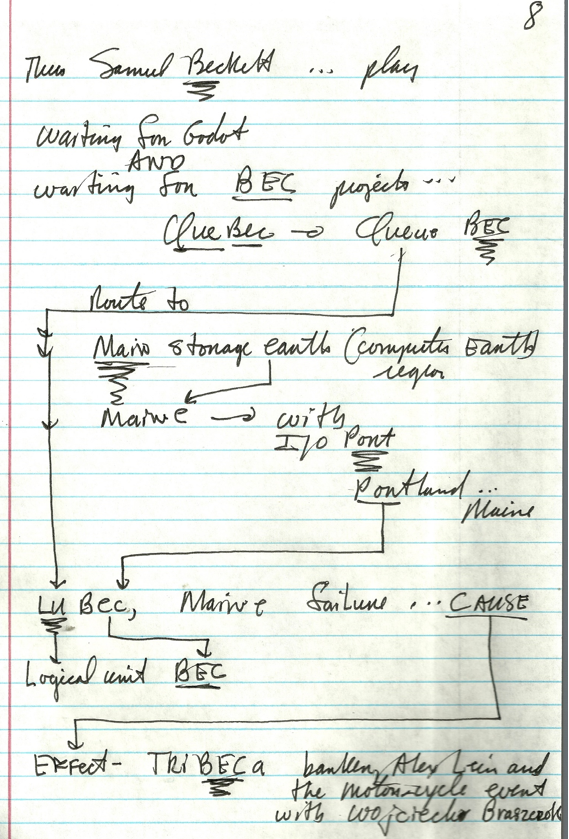 8
Thus Samuel Beckett ... play
waiting for Godot
AND
waiting for BEC projects ...
QueBec → Queue BEC
Route to
Main storage earth (computer Earth)
region
Maine → with
I/O Port
Portland ...
Maine
LU Bec, Maine failure ... CAUSE
Logical unit BEC
Effect - TRiBECa banker, Alex Lein and
the motorcycle event
with Wojciech